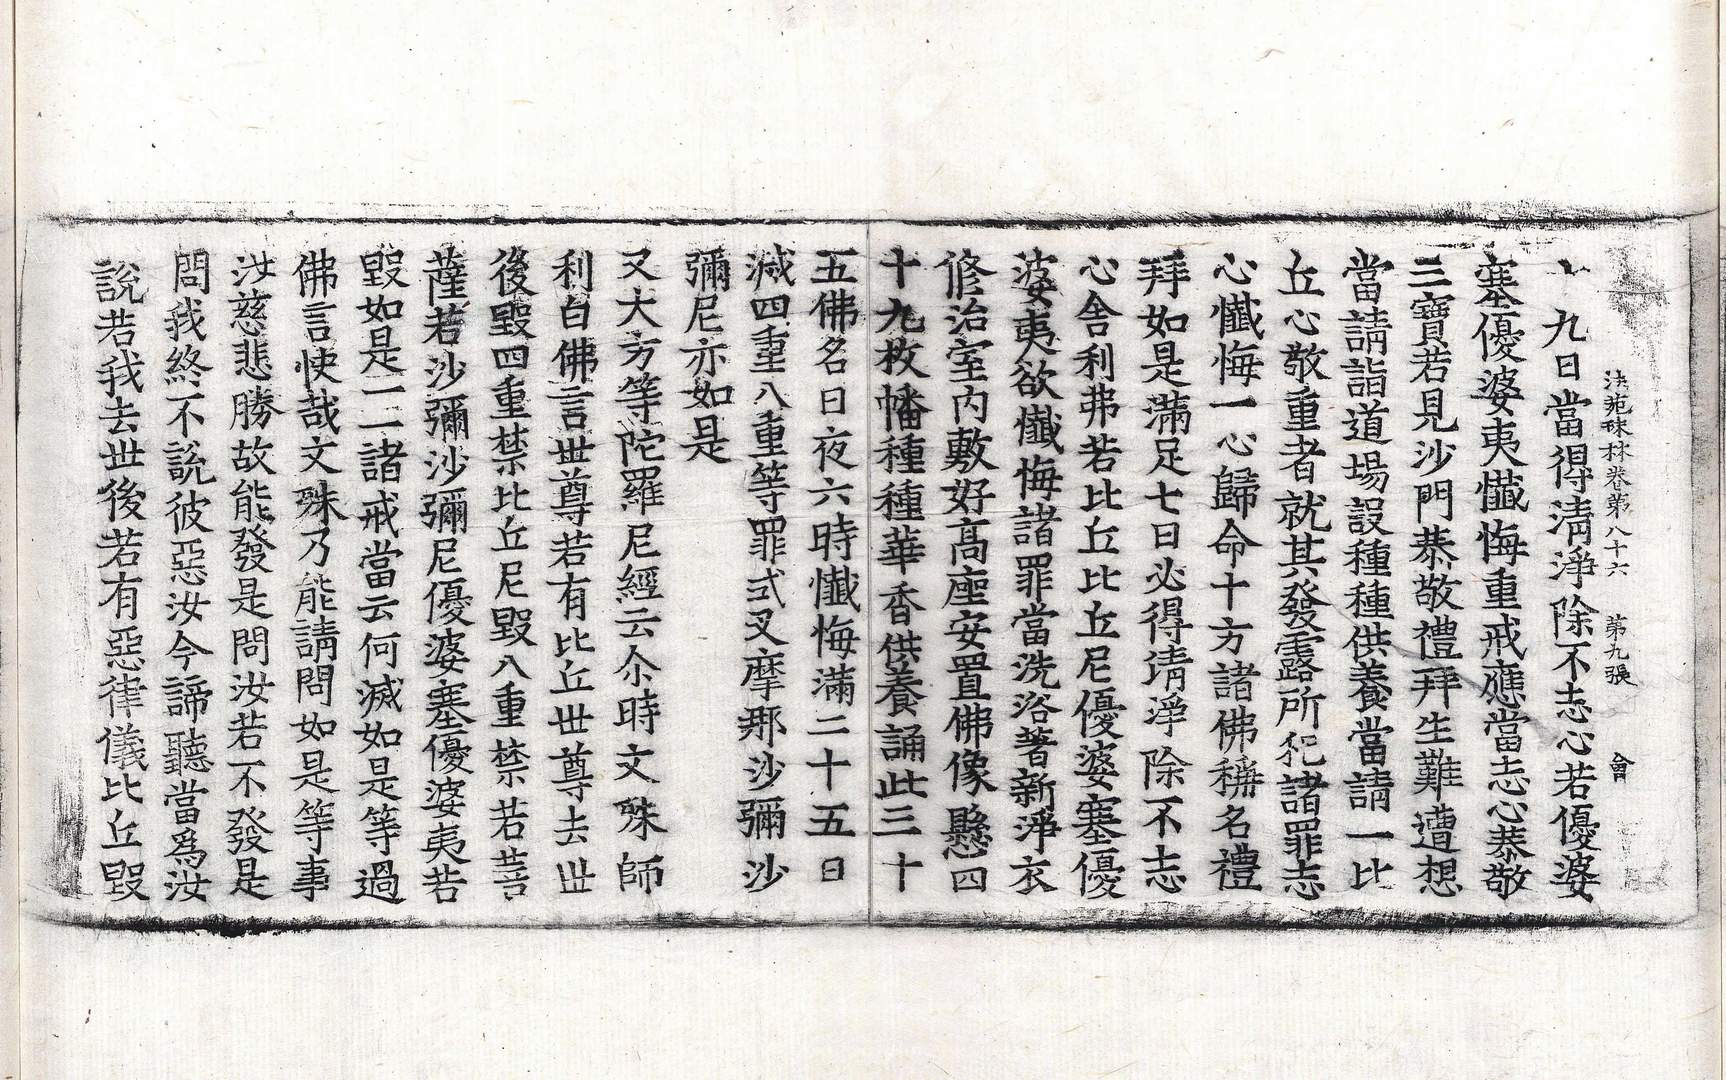 法苑珠林卷第八十六　第九張　會
九日當得清淨除不志心若優婆
塞優婆夷懺悔重戒應當志心恭敬
三寶若見沙門恭敬禮拜生難遭想
當請詣道場設種種供養當請一比
丘心敬重者就其發露所犯諸罪志
心懺悔一心歸命十方諸佛稱名禮
拜如是滿足七日必得清淨除不志
心舍利弗若比丘比丘尼優婆塞優
婆夷欲懺悔諸罪當洗浴著新淨衣
修治室內敷好高座安置佛像懸四
十九枚幡種種華香供養誦此三十
五佛名日夜六時懺悔滿二十五日
滅四重八重等罪式叉摩那沙彌沙
彌尼亦如是
又大方等陀羅尼經云尒時文殊師
利白佛言世尊若有比丘世尊去世
後毀四重禁比丘尼毀八重禁若菩
薩若沙彌沙彌尼優婆塞優婆夷若
毀如是一一諸戒當云何滅如是等過
佛言快哉文殊乃能請問如是等事
汝慈悲勝故能發是問汝若不發是
問我終不說彼惡汝今諦聽當爲汝
說若我去世後若有惡律儀比丘毀